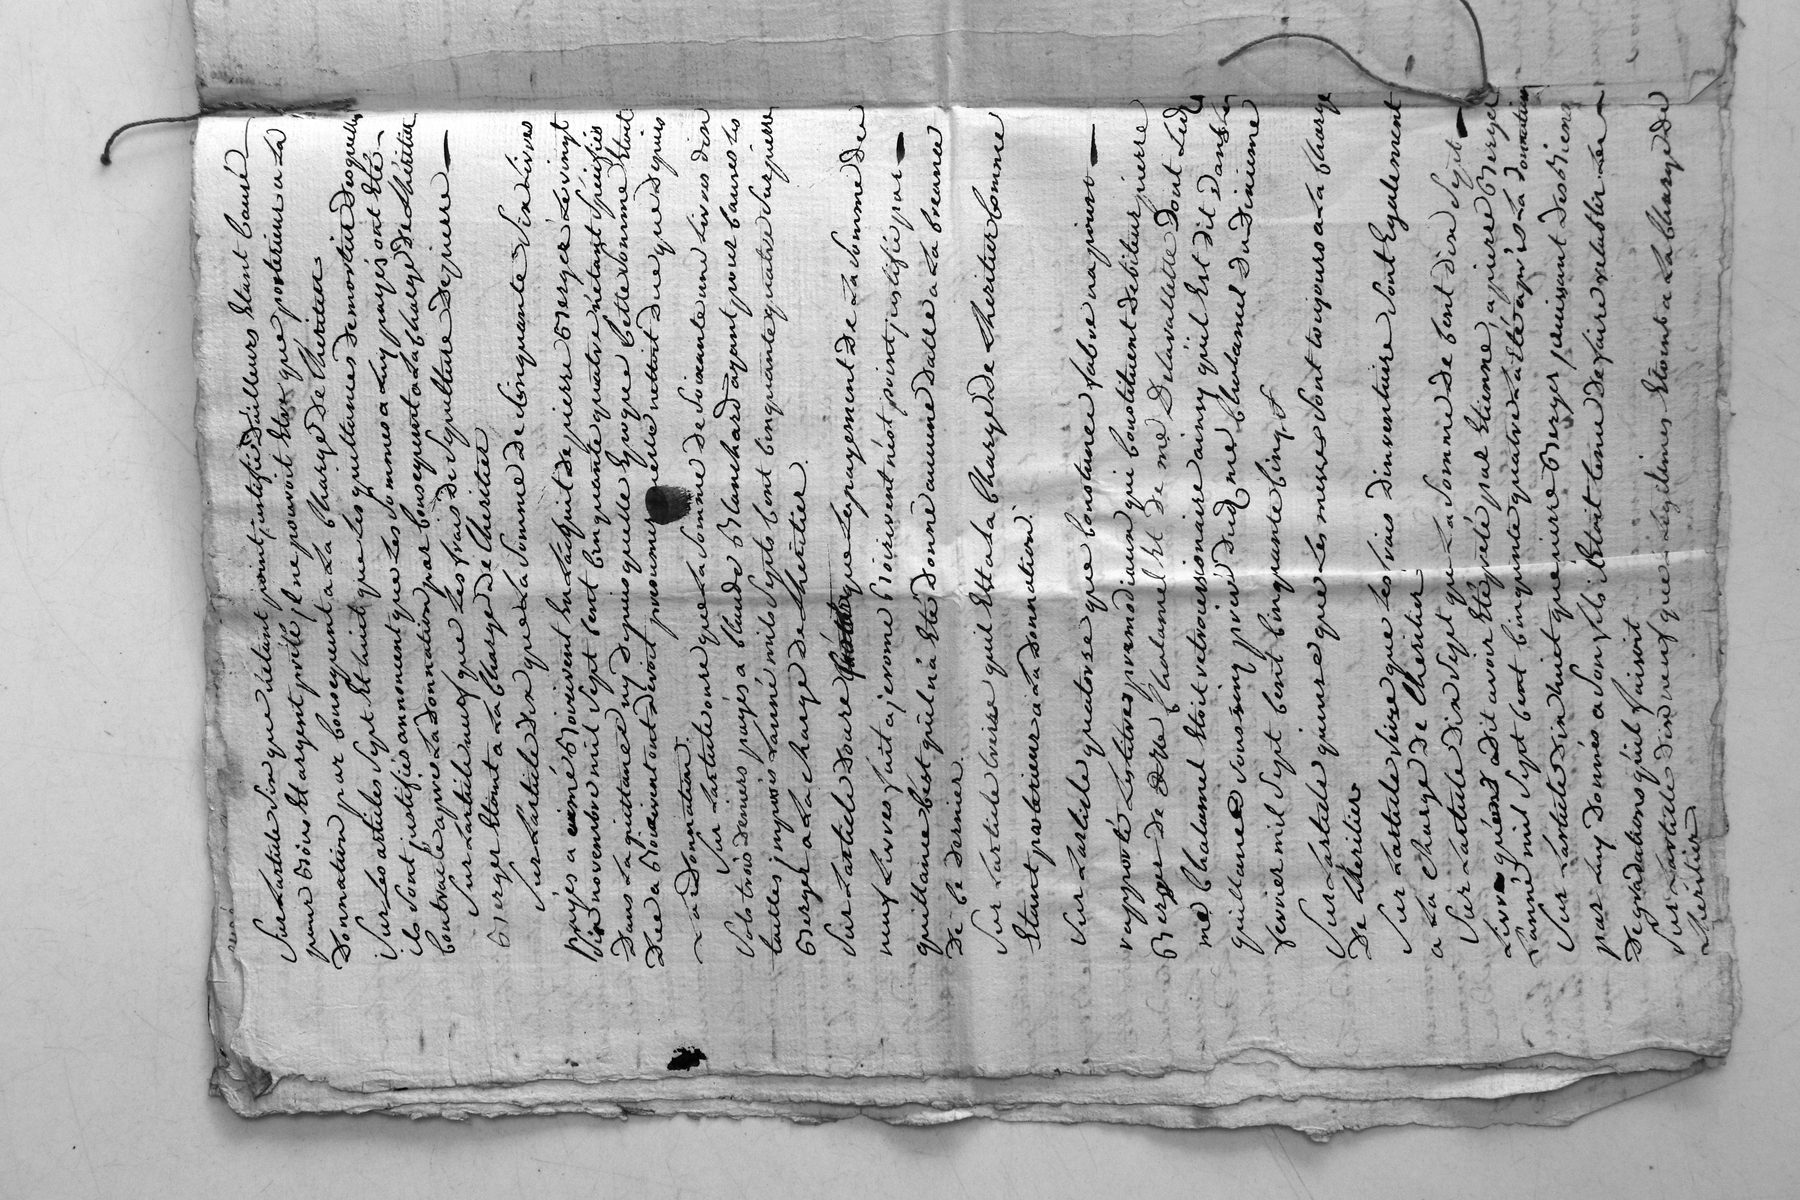 Sur Larticle Six que nétant point justifié Dailleurs Etant Causé
pour Bois Et argent prété, il ne pouvoit Etre que posterieur a La
Donnation par Consequent a La Charge De Lheritier
Sur Les articles Sept Et huit que Les quittances De mortier Desquelles
ils Sont justifiés annoncent que Les Sommes a Luy payés ont Eté
Contractée apres La Donnation par Consequent a La Charge De Lheritier
Sur Larticle neuf que Les frais De Sepulture De pierre
Berger Etoint a La Charge De Lheritier
Sur Larticle Dix que La Somme De Cinquante Six Livres
payés a aimé Boisivent En Lacquit De pierre Berger Le vingt
Six novembre mil Sept Cent Cinquante quatre nétant Specifiés
Dans La quittance ny Depuis quelle Epoque Cette Somme Etoit
Due a Boisivent on Devoit presumer quelle nettoit Due que Depuis
La Donnation.
Sur Larticle onze que La Somme De Soixante une Livres Dix
Sols trois Deniers payés a Claude Blanchard ayant pour Cause Les
tailles imposés Lanné mil Sept Cent Cinquante quatre Sur pierre
Berger a La Charge De Lheritier.
Sur Larticle Douze que Le payement De La Somme De
neuf Livres fait a jerome Boisivent nést point justifié par
quittance Cést qu'il n'a Eté Donné aucune Datte a La Creance
De Ce Dernier.
Sur Larticle treize quil Est a La Charge De Lheritier Comme
Etant posterieur a La Donnation.
Sur Larticle quatorze que Constance fabre na point
rapporté Les titres primordiaux qui Constituent Debiteur pierre
Berger De Me Chalamel Et De me Delavallette Dont Led
me Chalamel Etoit retrocessionaire ainsy qu'il Est Dit Dans La
quittance Sous Seing privé Dud me Chalamel Du Dixieme
fevrier mil Sept Cent Cinquante Cinq
Sur Larticle quinze que Les messes Sont toujours a La Charge
De Lheritier
Sur Larticle Seize que Les frais Dinventaire Sont Egalement
a La Charge De Lheritier
Sur Larticle Dix Sept que La Somme De Cent Dix Sept
Livres quon Dit avoir Eté preté par Etienne, a pierre Berger
Lanné mil Sept Cent Cinquante quatre La Eté apres La Donnation
Sur Larticle Dix huit que pierre Berger jouissant Des Biens
par Luy Donnés a Son fils il Etoit tenu De faire retablir Les
Degradations qu'il faisoit
Sur Larticle Dix neuf que Les Legitimes Etoint a La Charge De
Lheritier